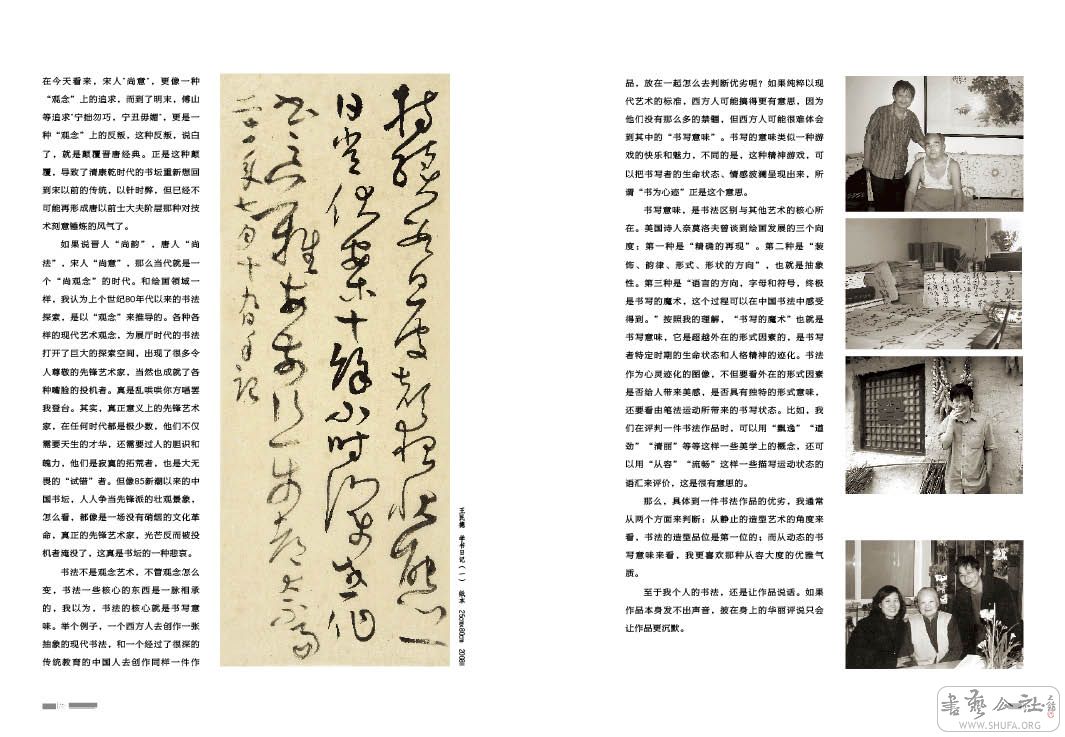 在今天看来，宋人“尚意”，更像一种
“观念”上的追求，而到了明末，傅山
等追求“宁拙勿巧，宁丑毋媚”，更是一
种“观念”上的反叛，这种反叛，说白
了，就是颠覆晋唐经典。正是这种颠
覆，导致了清康乾时代的书坛重新想回
到宋以前的传统，以针时弊，但已经不
可能再形成唐以前士大夫阶层那种对技
术刻意锤炼的风气了。
如果说晋人“尚韵”，唐人“尚
法”，宋人“尚意”，那么当代就是一
个“尚观念”的时代。和绘画领域一
样，我认为上个世纪80年代以来的书法
探索，是以“观念”来推导的。各种各
样的现代艺术观念，为展厅时代的书法
打开了巨大的探索空间，出现了很多令
人尊敬的先锋艺术家，当然也成就了各
种嘴脸的投机者。真是乱哄哄你方唱罢
我登台。其实，真正意义上的先锋艺术
家，在任何时代都是极少数，他们不仅
需要天生的才华，还需要过人的胆识和
魄力，他们是寂寞的拓荒者，也是大无
畏的“试错”者。但像85新潮以来的中
国书坛，人人争当先锋派的壮观景象，
怎么看，都像是一场没有硝烟的文化革
命，真正的先锋艺术家，光芒反而被投
机者淹没了，这真是书坛的一种悲哀。
书法不是观念艺术，不管观念怎么
变，书法一些核心的东西是一脉相承
的，我以为，书法的核心就是书写意
味。举个例子，一个西方人去创作一张
抽象的现代书法，和一个经过了很深的
传统教育的中国人去创作同样一件作
王民德 学书日记（一） 纸本 25cm×80cm 2008
品，放在一起怎么去判断优劣呢？如果纯粹以现
代艺术的标准，西方人可能搞得更有意思，因为
他们没有那么多的禁锢，但西方人可能很难体会
到其中的“书写意味”。书写的意味类似一种游
戏的快乐和魅力，不同的是，这种精神游戏，可
以把书写者的生命状态、情感波澜呈现出来，所
谓“书为心迹”正是这个意思。
书写意味，是书法区别与其他艺术的核心所
在。美国诗人奈莫洛夫曾谈到绘画发展的三个向
度：第一种是“精确的再现”。第二种是“装
饰、韵律、形式、形状的方向”，也就是抽象
性。第三种是“语言的方向，字母和符号，终极
是书写的魔术，这个过程可以在中国书法中感受
得到。”按照我的理解，“书写的魔术”也就是
书写意味，它是超越外在的形式因素的，是书写
者特定时期的生命状态和人格精神的迹化。书法
作为心灵迹化的图像，不但要看外在的形式因素
是否给人带来美感，是否具有独特的形式意味，
还要看由笔法运动所带来的书写状态。比如，我
们在评判一件书法作品时，可以用“飘逸”“遒
劲”“清丽”等等这样一些美学上的概念，还可
以用“从容”“流畅”这样一些描写运动状态的
语汇来评价，这是很有意思的。
那么，具体到一件书法作品的优劣，我通常
从两个方面来判断：从静止的造型艺术的角度来
看，书法的造型品位是第一位的；而从动态的书
写意味来看，我更喜欢那种从容大度的优雅气
质。
至于我个人的书法，还是让作品说话。如果
作品本身发不出声音，披在身上的华丽评说只会
让作品更沉默。
書藝公社
WWW.SHUFA.ORG